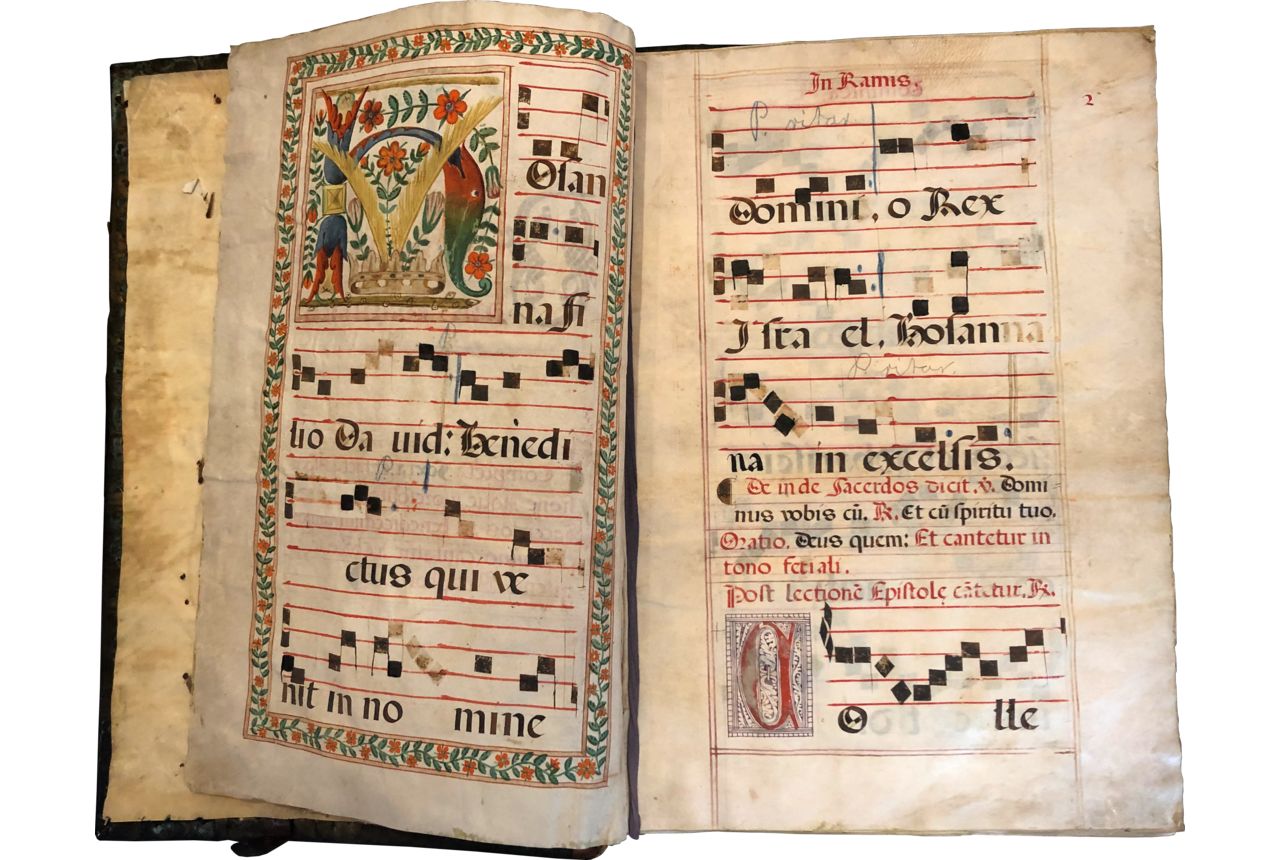 Osan
na fi
lio Da uid: Benedi
ctus qui ve
nit in no mine
In Ramis.
2
P. ritar
Domini, o Rex
Isra el, Hosanna
P. ritar.
na in excelsis.
De inde Sacerdos dicit. ℣. Domi=
nus vobis cū. ℟. Et cū spiritu tuo.
Oratio. Deus quem: Et cantetur in
tono feriali.
Post lectionē Epistolę cātatur. ℟.
C
O lle